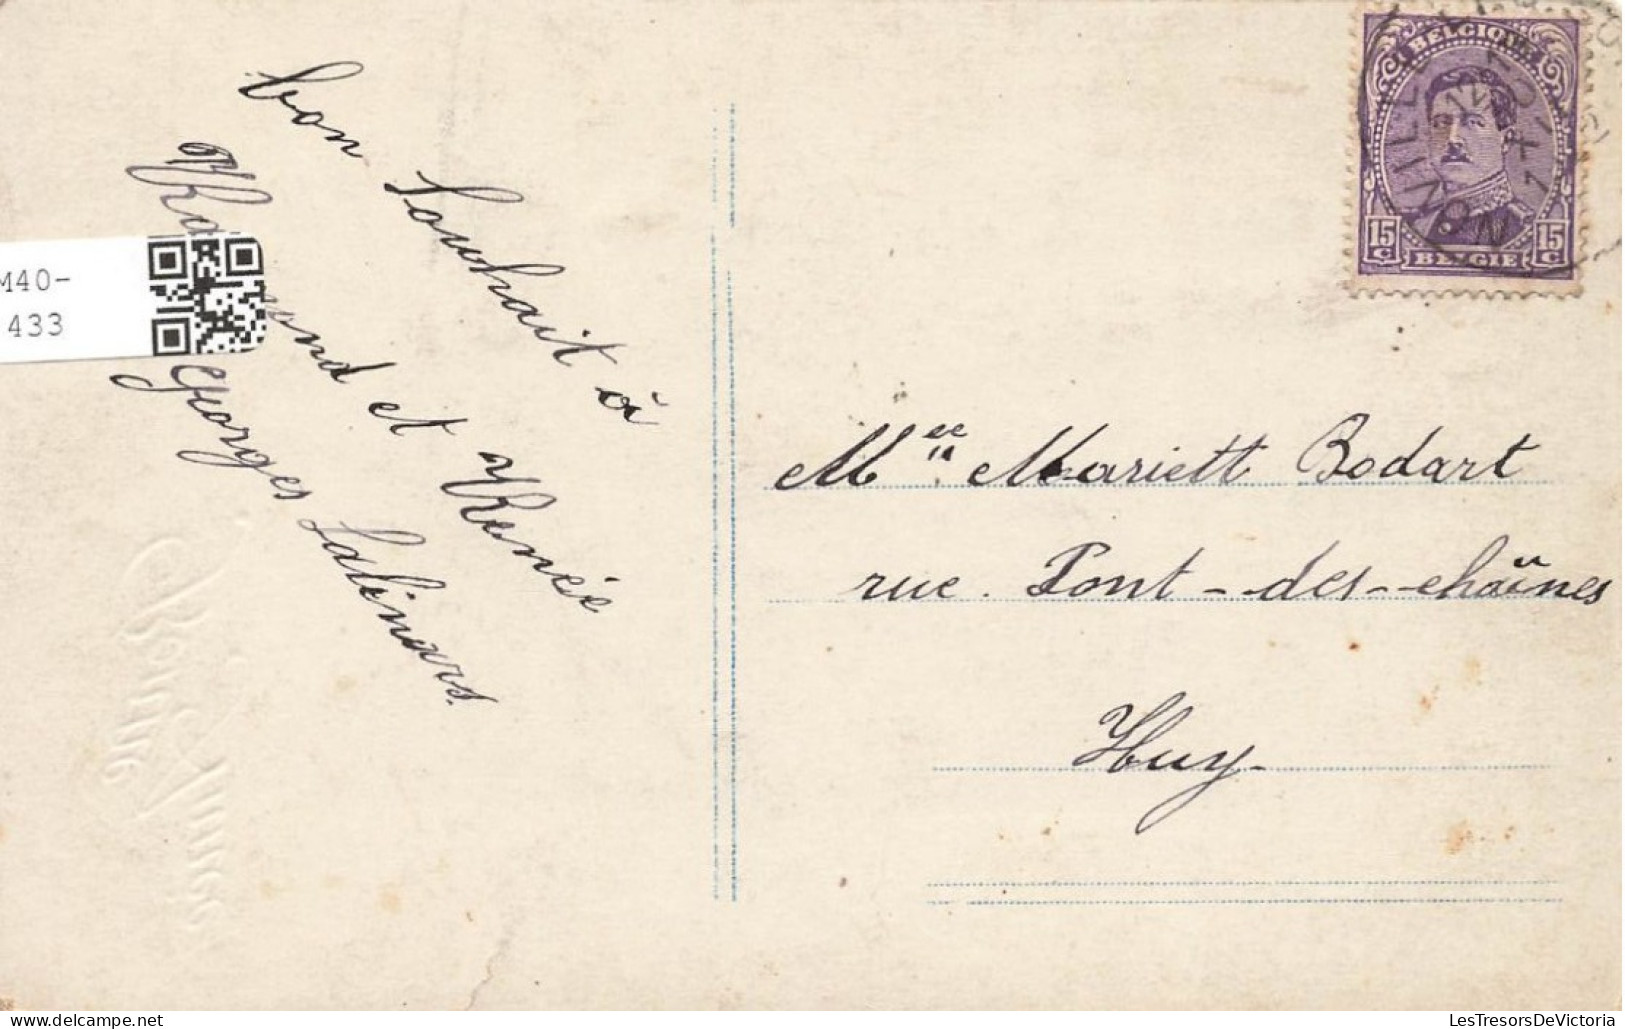 bon Souhait à
et Renée
Georges Salinars.
M40-
433
BELGIQUE
15 C
15 C
BELGIË
M^ee Mariett Bodart
rue . Pont - des - chaînes
Huy -
Bonne Année
LesTresorsDeVictoria.com